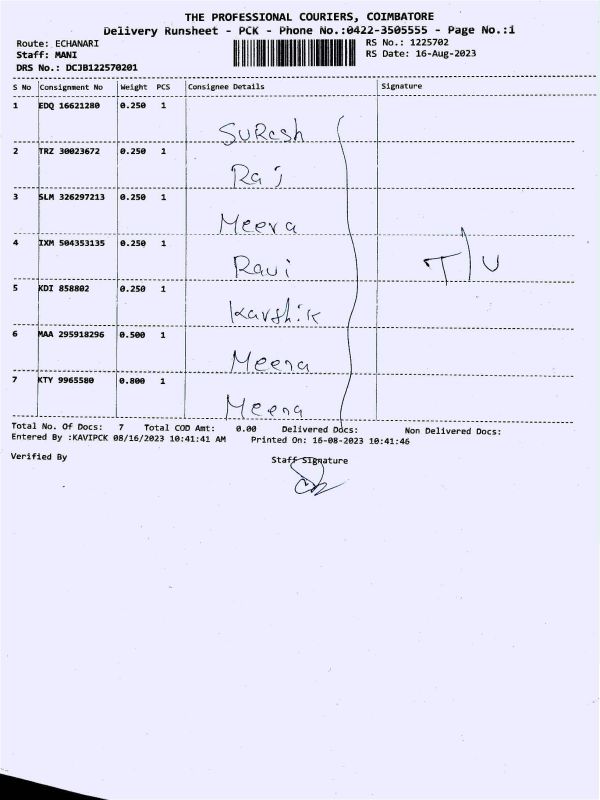 THE PROFESSIONAL COURIERS, COIMBATORE
Delivery Runsheet - PCK - Phone No.:0422-3505555 - Page No.:1
Route: ECHANARI RS No.: 1225702
Staff: MANI RS Date: 16-Aug-2023
DRS No.: DCJB122570201
S No Consignment No Weight PCS Consignee Details Signature
1 EDQ 16621280 0.250 1
Suresh
2 TRZ 30023672 0.250 1
Raj
3 SLM 326297213 0.250 1
Meera
4 IXM 504353135 0.250 1
Ravi T/U
5 KDI 858802 0.250 1
Karthik
6 MAA 295918296 0.500 1
Meena
7 KTY 9965580 0.800 1
Meena
Total No. Of Docs: 7 Total COD Amt: 0.00 Delivered Docs: Non Delivered Docs:
Entered By :KAVIPCK 08/16/2023 10:41:41 AM Printed On: 16-08-2023 10:41:46
Verified By Staff Signature